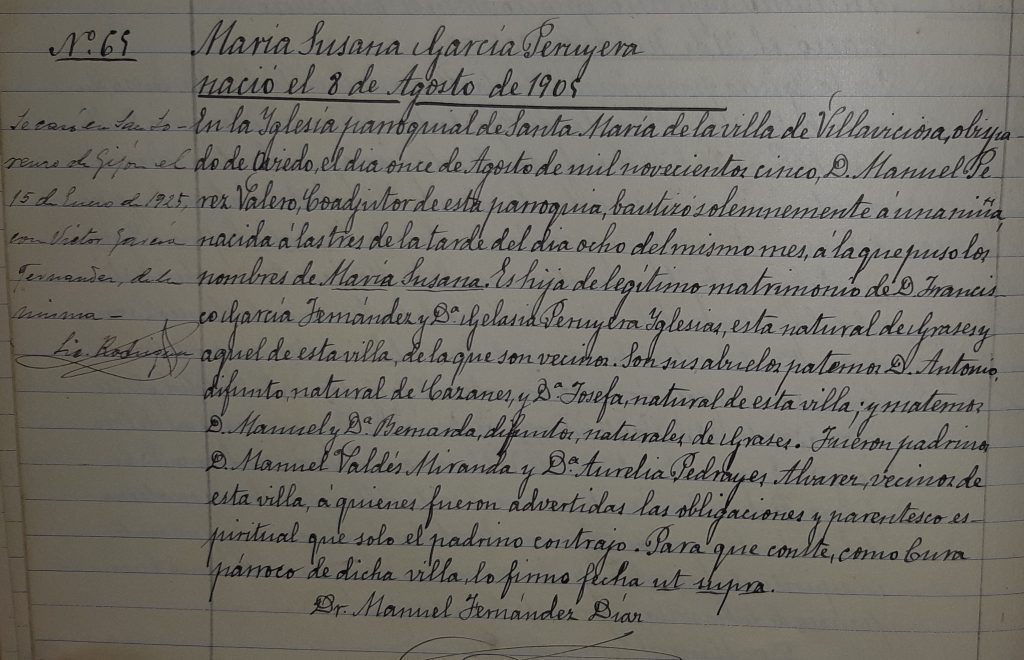 Nº. 65
María Susana García Peruyera
nació el 8 de Agosto de 1905
Se casó en San Lo-
renzo de Gijón el
15 de Enero de 1925,
con Víctor García
Fernandez, de la
misma -
Lic. Rodriguez
En la Yglesia parroquial de Santa María de la villa de Villaviciosa, obispa-
do de Oviedo, el dia once de Agosto de mil novecientos cinco, D. Manuel Pe-
rez Valero, Coadjutor de esta parroquia, bautizó solemnemente á una niña,
nacida á las tres de la tarde del dia ocho del mismo mes, á la que puso los
nombres de María Susana. Es hija de legítimo matrimonio de D. Francis-
co García Fernández y Dª. Gelasia Peruyera Yglesias, esta natural de Grases y
aquel de esta villa, de la que son vecinos. Son sus abuelos paternos D. Antonio,
difunto, natural de Cazanes, y Dª. Josefa, natural de esta villa; y maternos
D. Manuel y Dª Bernarda, difuntos, naturales de Grases. Fueron padrinos
D. Manuel Valdés Miranda y Dª. Aurelia Pedrayes Alvarez, vecinos de
esta villa, á quienes fueron advertidas las obligaciones y parentesco es-
piritual que solo el padrino contrajo. Para que conste, como Cura
párroco de dicha villa, lo firmo fecha ut supra.
Dr. Manuel Fernández Díaz